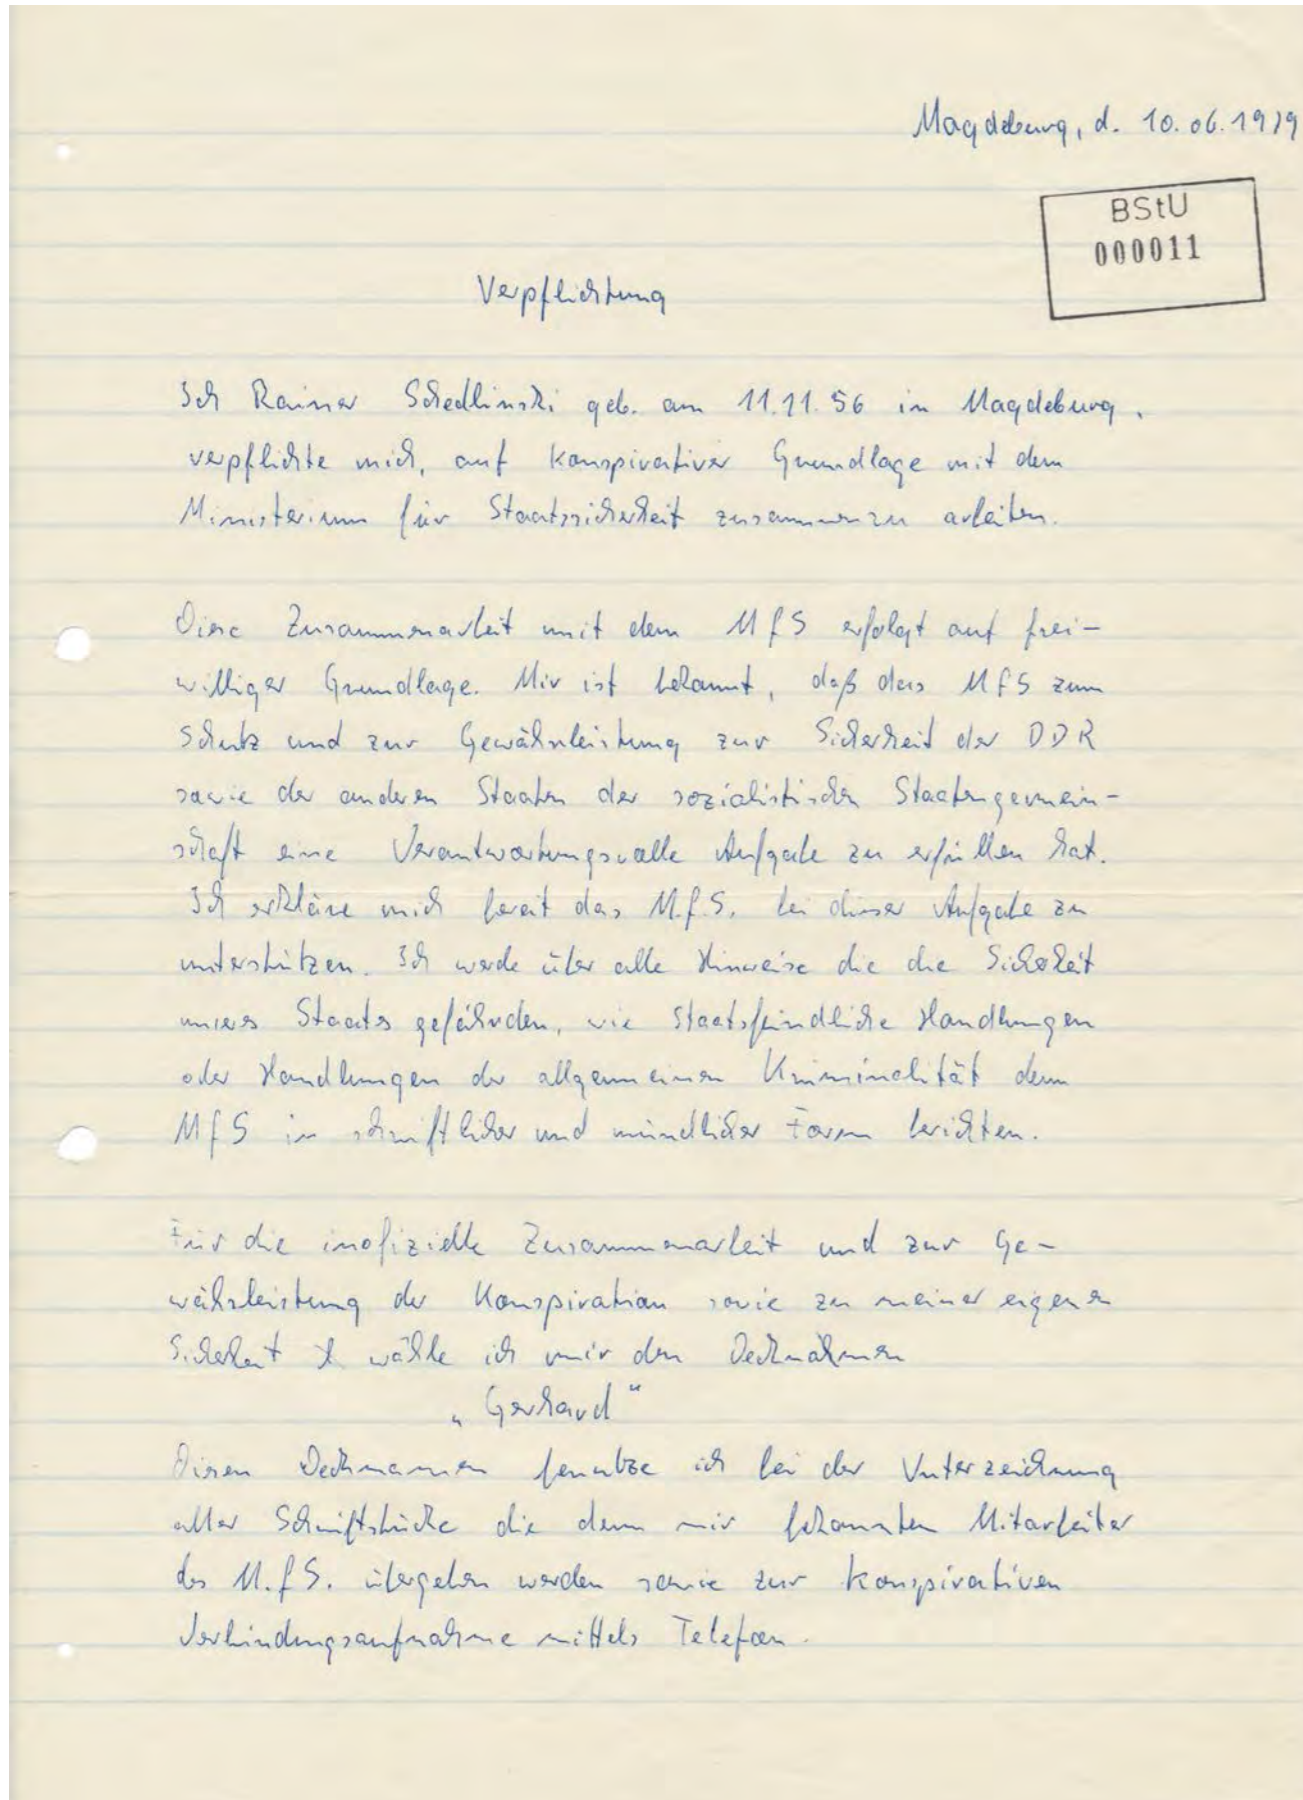 Magdeburg, d. 10.06.1979
BStU
000011
Verpflichtung
Ich Rainer Schedlinski geb. am 11.11.56 in Magdeburg,
verpflichte mich, auf konspirativer Grundlage mit dem
Ministerium für Staatssicherheit zusammenzu arbeiten.
Diese Zusammenarbeit mit dem MfS erfolgt auf frei-
williger Grundlage. Mir ist bekannt, daß das MfS zum
Schutz und zur Gewährleistung zur Sicherheit der DDR
sowie der anderen Staaten der sozialistischen Staatengemein-
schaft eine Verantwortungsvolle Aufgabe zu erfüllen hat.
Ich erkläre mich bereit das M.f.S. bei dieser Aufgabe zu
unterstützen. Ich werde über alle Hinweise die die Sicherheit
unseres Staates gefährden, wie Staatsfeindliche Handlungen
oder Handlungen der allgemeinen Kriminalität dem
MfS in schriftlicher und mündlicher Form berichten.
Für die inofizielle Zusammenarbeit und zur Ge-
währleistung der Konspiration sowie zu meiner eigenen
Sicherheit wähle ich mir den Decknahmen
„Gerhard"
Diesen Decknamen benutze ich bei der Unterzeichnung
aller Schriftstücke die dem mir bekannten Mitarbeiter
des M.f.S. übergeben werden sowie zur konspirativen
Verbindungsaufnahme mittels Telefon.